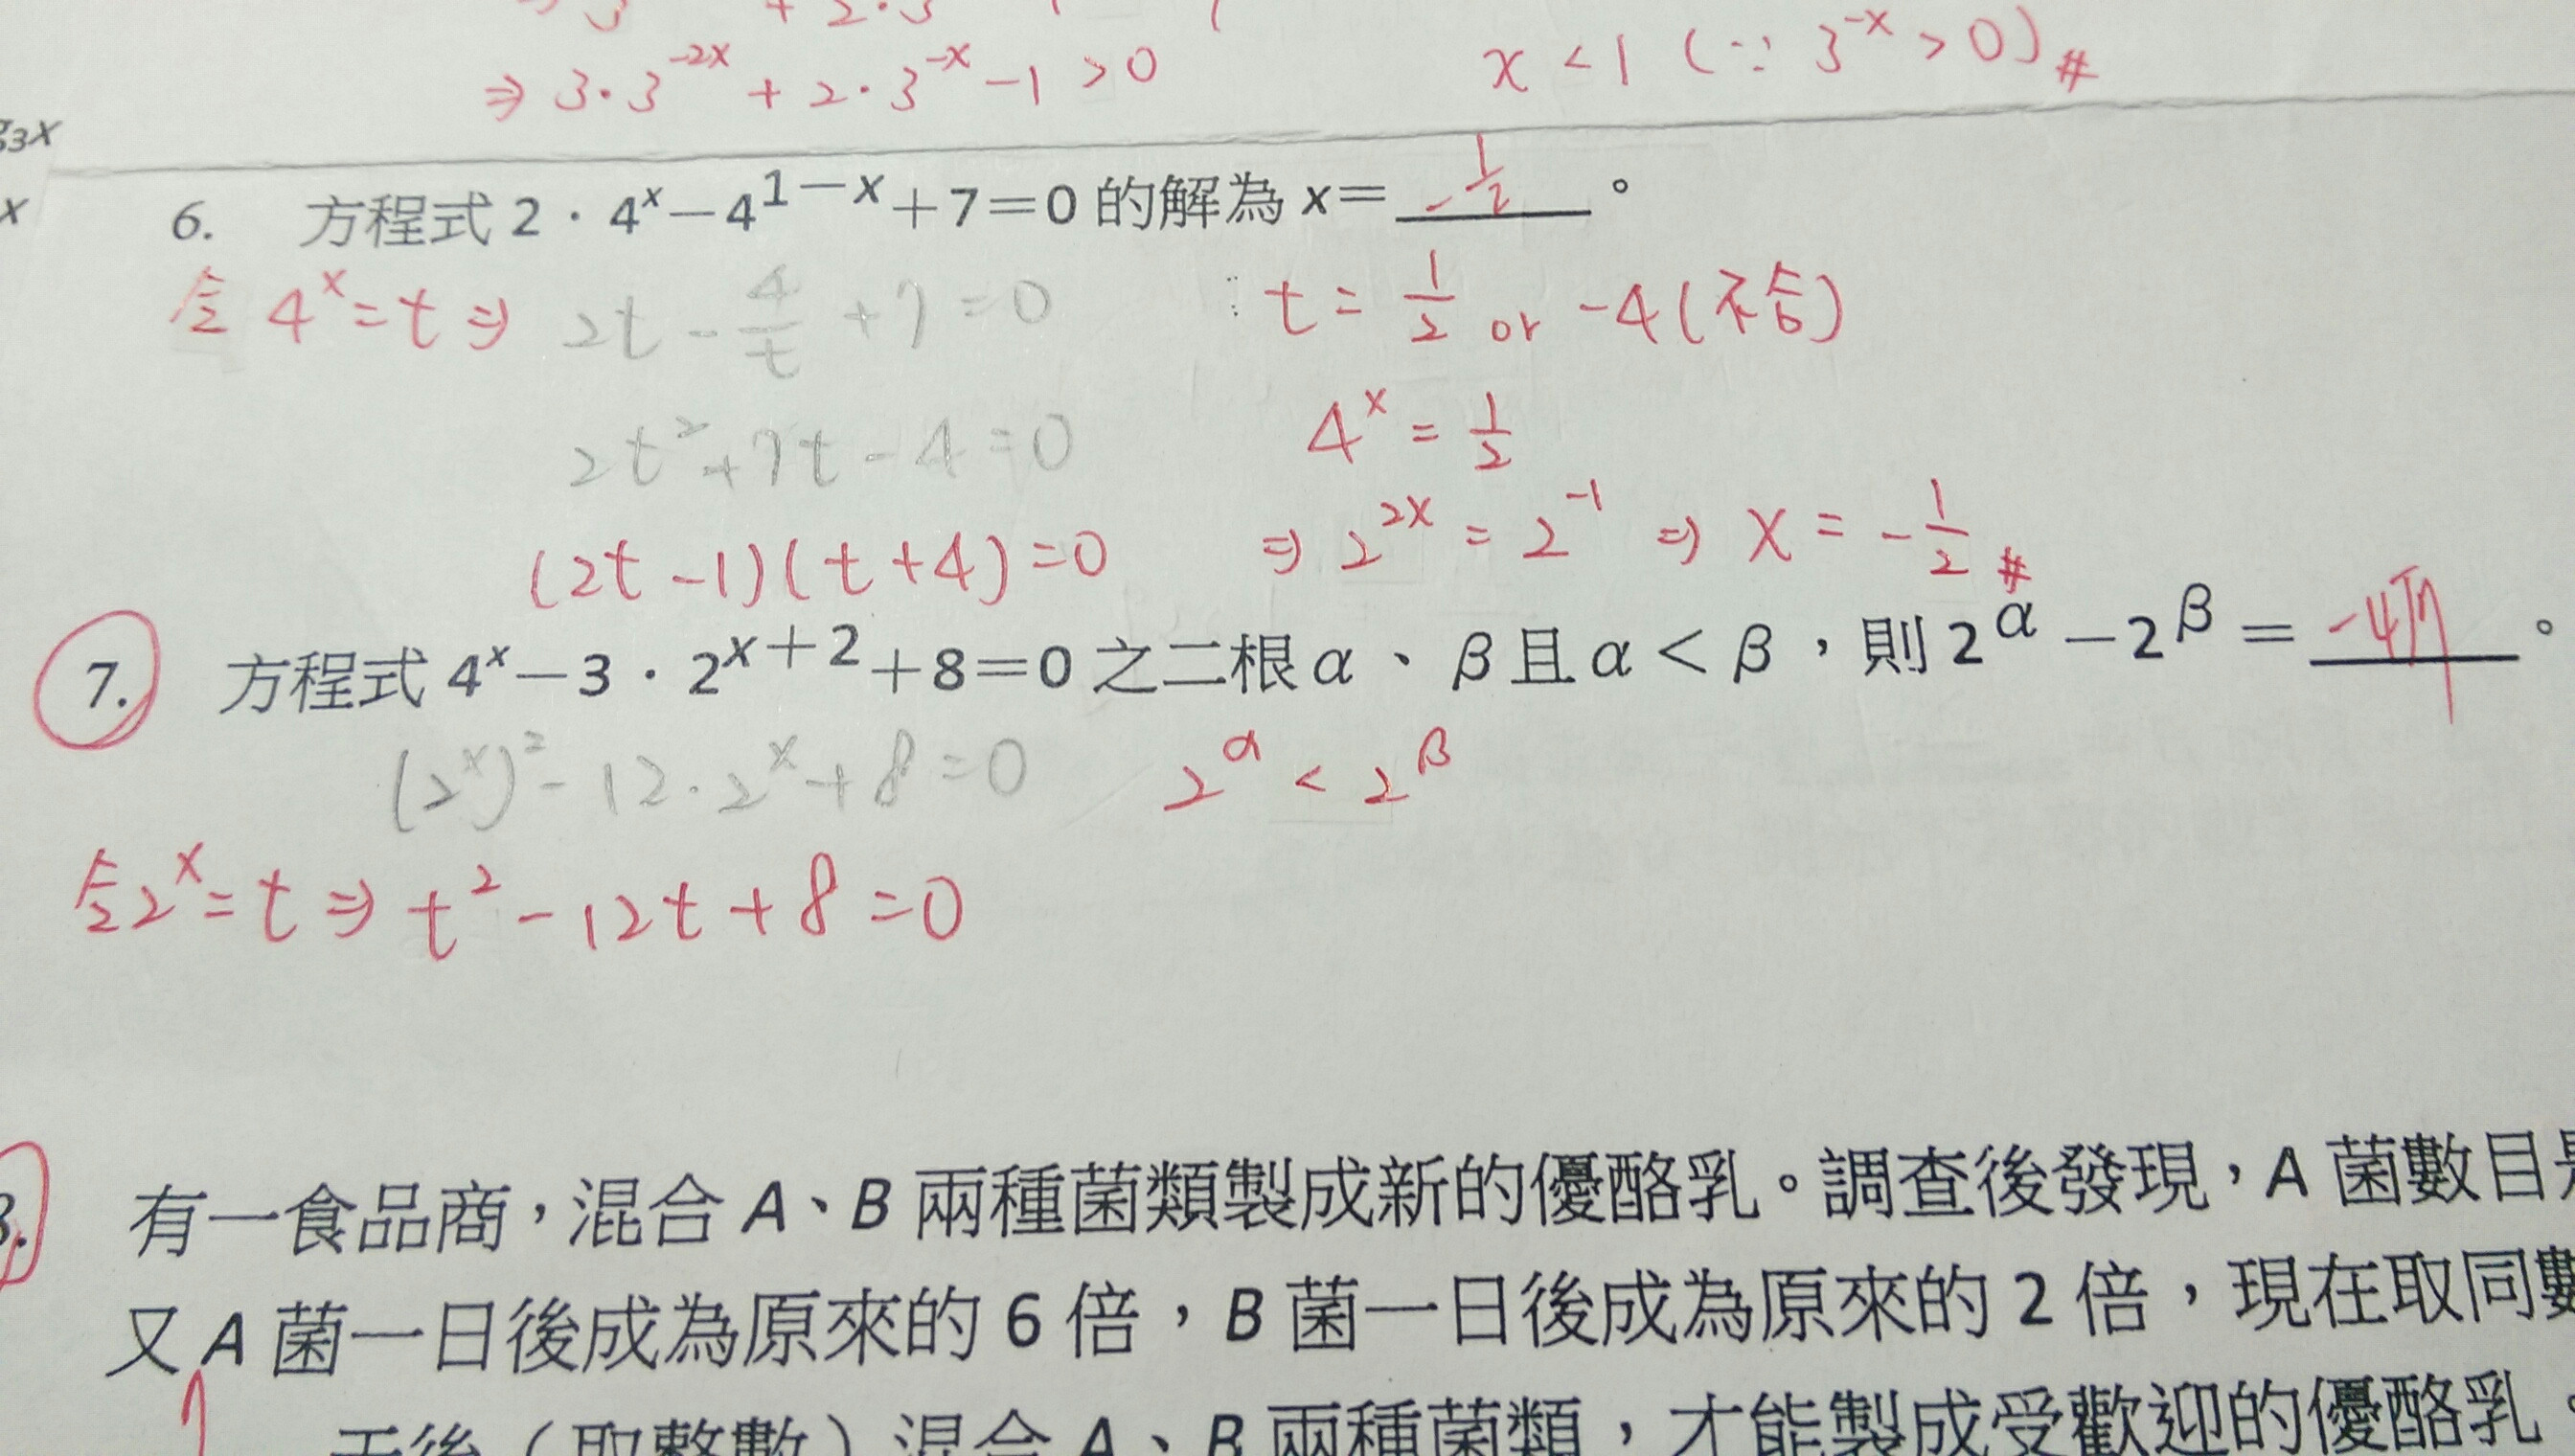 ⇒ 3·3^{-2x} + 2·3^{-x} - 1 > 0
x < 1 (∵ 3^{-x} > 0) #
3x
x
6. 方程式 2·4^x－4^{1－x}＋7＝0 的解為 x＝ -1/2 。
令 4^x = t ⇒ 2t - 4/t + 7 = 0
∴ t = 1/2 or -4 (不合)
2t² + 7t - 4 = 0
4^x = 1/2
(2t - 1)(t + 4) = 0
⇒ 2^{2x} = 2^{-1} ⇒ x = -1/2 #
7. 方程式 4^x－3·2^{x＋2}＋8＝0 之二根α、β且α＜β，則 2^α－2^β＝ -4√7 。
(2^x)² - 12·2^x + 8 = 0
2^α < 2^β
令 2^x = t ⇒ t² - 12t + 8 = 0
有一食品商，混合 A、B 兩種菌類製成新的優酪乳。調查後發現，A 菌數目
又 A 菌一日後成為原來的 6 倍，B 菌一日後成為原來的 2 倍，現在取同數
天後（取整數）混合 A、B 兩種菌類，才能製成受歡迎的優酪乳。